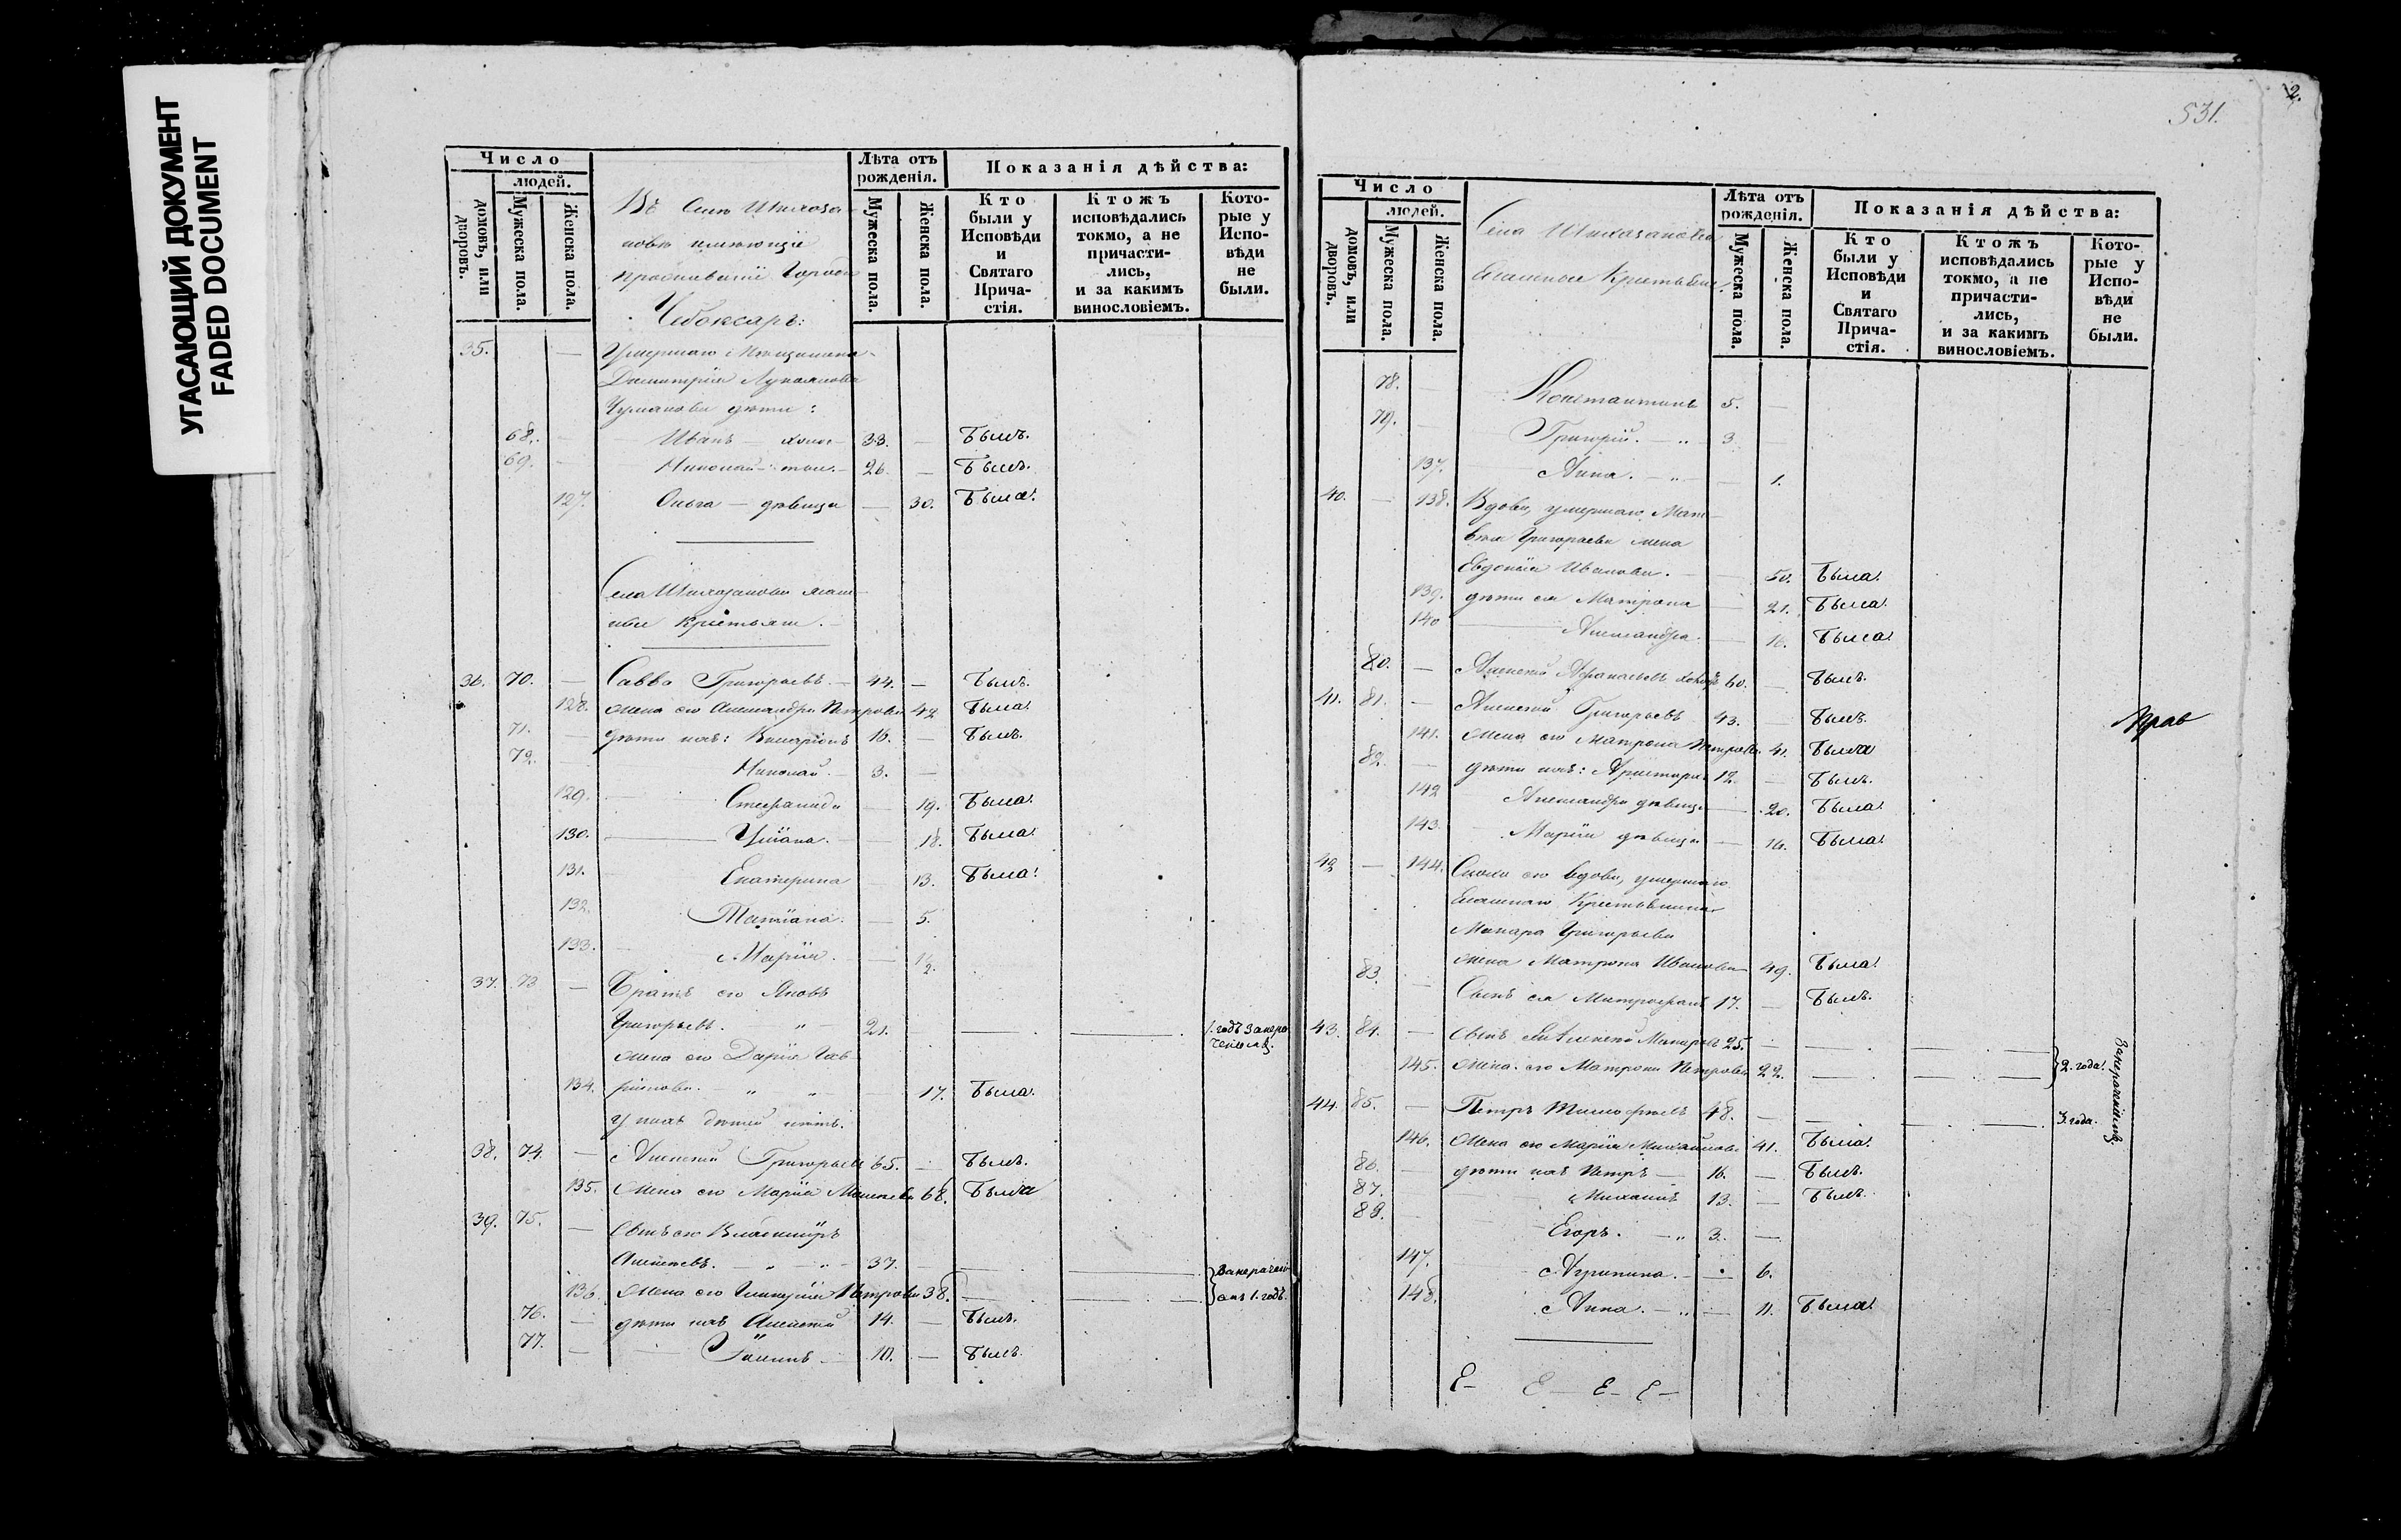 УГАСАЮЩИЙ ДОКУМЕНТ
FADED DOCUMENT
Число
людей.
домовъ, или дворовъ.
Мужеска пола.
Женска пола.
Въ Селѣ Шихаза-
новѣ имѣющіе
Города
Чебоксаръ:
Лѣта отъ
рожденія.
Мужеска пола.
Женска пола.
Показанія дѣйства:
Кто
были у
Исповѣди
и
Святаго
Прича-
стія.
Ктожъ
исповѣдались
токмо, а не
причасти-
лись,
и за какимъ
винословіемъ.
Кото-
рые у
Испо-
вѣди
не
были.
35. — Умершаго Мѣщанина
Димитрія Лукоянова
Чумакова дѣти:
68. — Иванъ — холос — 33. — Былъ.
69. — Николай — тож. — 26. — Былъ.
127. Ольга — дѣвица — 30. Была.
Села Шихазанова
Крестьяне.
36. 70. — Савва Григорьевъ. — 44. — Былъ.
128. Жена его Александра Петрова 42 Была.
71. — дѣти ихъ: 16. — Былъ.
72. — Николай. — 3. —
129. Стефанида — 19. Была.
130. — Уліана. — 18. Была.
131. Екатерина — 13. Была.
132. Татіана. — 5.
133. — Марія. — 1/2.
37. 73 — Братъ его Яковъ
Григорьевъ. — „ — 21. — — — 1. годъ за неро-
ченіемъ.
Жена его Дарія Гав-
134. рилова. — „ — 17. Была.
У нихъ дѣтей нѣтъ.
38. 74. — Алексѣй Григорьевъ 65. — Былъ.
135. Жена его Марія 68. Была
39. 75. — Сынъ его Владиміръ
Алексѣевъ. — „ — 37. — — —
136. Жена его Петрова 38. — —
1. годъ.
76. — дѣти ихъ Алексѣй 14. — Былъ.
77. — — 10. — Былъ.
2.
531.
Число
людей.
домовъ, или дворовъ.
Мужеска пола.
Женска пола.
Села Шихазанова
Крестьяне
Лѣта отъ
рожденія.
Мужеска пола.
Женска пола.
Показанія дѣйства:
Кто
были у
Исповѣди
и
Святаго
Прича-
стія.
Ктожъ
исповѣдались
токмо, а не
причасти-
лись,
и за какимъ
винословіемъ.
Кото-
рые у
Испо-
вѣди
не
были.
78. — Константинъ 5. —
79. — Григорій. — „ — 3. —
137. Анна. — „ — 1.
40. — 138. Вдова, умершаго Мат-
вѣя Григорьева жена
Евдокія Иванова. — 50. Была.
139. дѣти ея Матрона — 21. Была.
140 Александра. — 16. Была.
80. — Алексѣй Афанасьевъ холос 60. — Былъ.
41. 81. — Алексѣй Григорьевъ 43. — Былъ.
141. Жена его Матрона Петрова. 41. Была
82. — дѣти ихъ: 12. — Былъ.
142 Александра дѣвица — 20. Была.
143. Марія дѣвица — 16. Была.
42 — 144. Сноха его вдова, умершаго
Крестьянина
Макара Григорьева
жена Матрона Иванова 49. Была.
83. — Сынъ ея Митрофанъ 17. — Былъ.
43. 84. — Сынъ Алексѣй Макаровъ 25. — — —
145. Жена его Матрона Петрова 22. — — —
2. года.
44. 85. — Петръ Тимофѣевъ 48. — — — 3. года.
146. Жена его Марія Михайлова 41. Была.
86. — дѣти ихъ Петръ — 16. — Былъ.
87. Михаилъ 13. — Былъ.
88. — Егоръ. — „ 3. —
147. Агрипина. — — 6.
148. Анна. — „ — 11. Была.
Прав